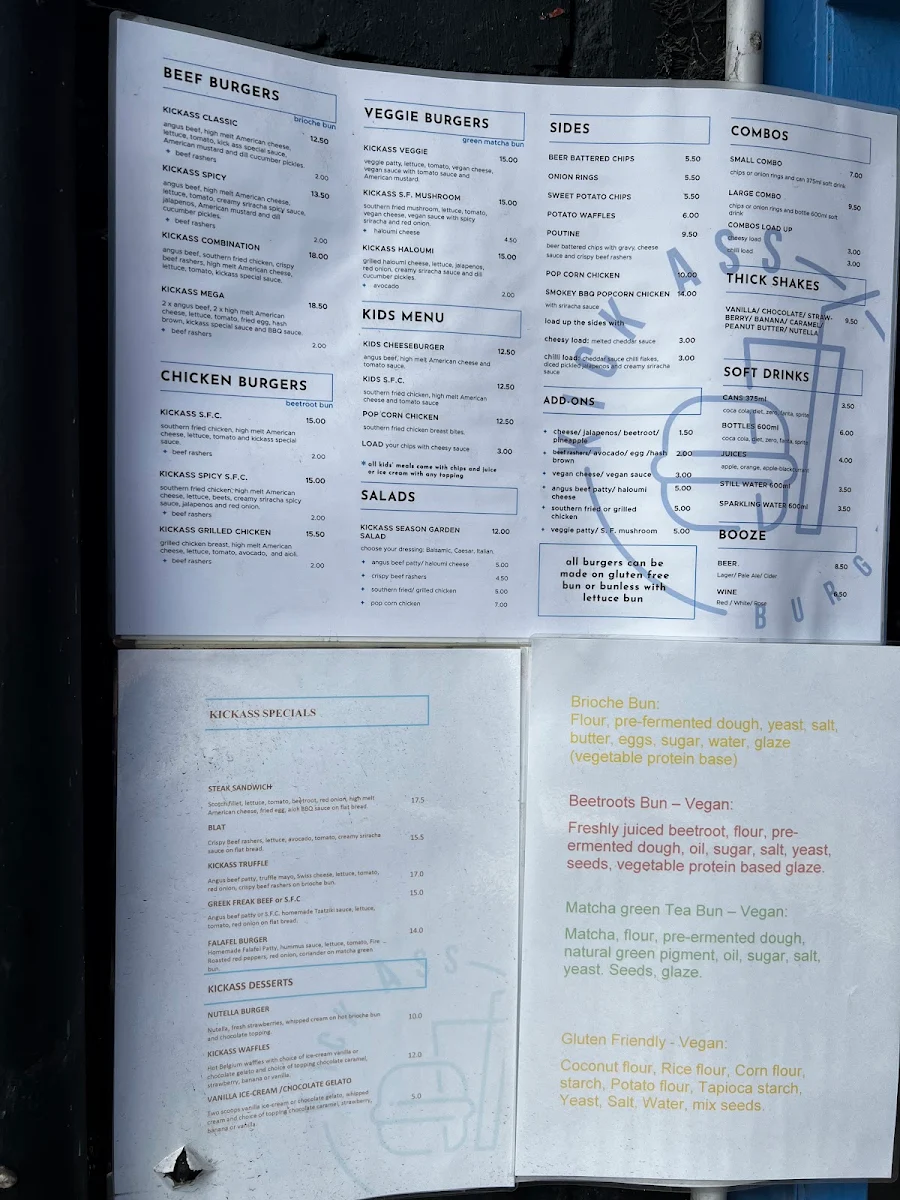 BEEF BURGERS
brioche bun
KICKASS CLASSIC 12.50
angus beef, high melt American cheese,
lettuce, tomato, kick ass special sauce,
American mustard and dill cucumber pickles.
+ beef rashers 2.00
KICKASS SPICY 13.50
angus beef, high melt American cheese,
lettuce, tomato, creamy sriracha spicy sauce,
jalapenos, American mustard and dill
cucumber pickles.
+ beef rashers 2.00
KICKASS COMBINATION 18.00
angus beef, southern fried chicken, crispy
beef rashers, high melt American cheese,
lettuce, tomato, kickass special sauce.
KICKASS MEGA 18.50
2 x angus beef, 2 x high melt American
cheese, lettuce, tomato, fried egg, hash
brown, kickass special sauce and BBQ sauce.
+ beef rashers 2.00
CHICKEN BURGERS
beetroot bun
KICKASS S.F.C. 15.00
southern fried chicken, high melt American
cheese, lettuce, tomato and kickass special
sauce.
+ beef rashers 2.00
KICKASS SPICY S.F.C. 15.00
southern fried chicken, high melt American
cheese, lettuce, beets, creamy sriracha spicy
sauce, jalapenos and red onion.
+ beef rashers 2.00
KICKASS GRILLED CHICKEN 15.50
grilled chicken breast, high melt American
cheese, lettuce, tomato, avocado, and aioli.
+ beef rashers 2.00
VEGGIE BURGERS
green matcha bun
KICKASS VEGGIE 15.00
veggie patty, lettuce, tomato, vegan cheese,
vegan sauce with tomato sauce and
American mustard.
KICKASS S.F. MUSHROOM 15.00
southern fried mushroom, lettuce, tomato,
vegan cheese, vegan sauce with spicy
sriracha and red onion.
+ haloumi cheese 4.50
KICKASS HALOUMI 15.00
grilled haloumi cheese, lettuce, jalapenos,
red onion, creamy sriracha sauce and dill
cucumber pickles.
+ avocado 2.00
KIDS MENU
KIDS CHEESEBURGER 12.50
angus beef, high melt American cheese and
tomato sauce.
KIDS S.F.C. 12.50
southern fried chicken, high melt American
cheese and tomato sauce
POP CORN CHICKEN 12.50
southern fried chicken breast bites.
LOAD your chips with cheesy sauce 3.00
* all kids' meals come with chips and juice
or ice cream with any topping
SALADS
KICKASS SEASON GARDEN 12.00
SALAD
choose your dressing: Balsamic, Caesar, Italian.
+ angus beef patty/ haloumi cheese 5.00
+ crispy beef rashers 4.50
+ southern fried/ grilled chicken 5.00
+ pop corn chicken 7.00
SIDES
BEER BATTERED CHIPS 5.50
ONION RINGS 5.50
SWEET POTATO CHIPS 5.50
POTATO WAFFLES 6.00
POUTINE 9.50
beer battered chips with gravy, cheese
sauce and crispy beef rashers
POP CORN CHICKEN 10.00
SMOKEY BBQ POPCORN CHICKEN 14.00
with sriracha sauce
load up the sides with
cheesy load: melted cheddar sauce 3.00
chilli load: cheddar sauce chili flakes, 3.00
diced pickled jalapenos and creamy sriracha
sauce
ADD-ONS
+ cheese/ jalapenos/ beetroot/ 1.50
pineapple
+ beef rashers/ avocado/ egg /hash 2.00
brown
+ vegan cheese/ vegan sauce 3.00
+ angus beef patty/ haloumi 5.00
cheese
+ southern fried or grilled 5.00
chicken
+ veggie patty/ S. F. mushroom 5.00
all burgers can be
made on gluten free
bun or bunless with
lettuce bun
COMBOS
SMALL COMBO 7.00
chips or onion rings and can 375ml soft drink
LARGE COMBO 9.50
chips or onion rings and bottle 600ml soft
drink
COMBOS LOAD UP
cheesy load 3.00
chili load 3.00
THICK SHAKES
VANILLA/ CHOCOLATE/ STRAW- 9.50
BERRY/ BANANA/ CARAMEL/
PEANUT BUTTER/ NUTELLA
SOFT DRINKS
CANS 375ml 3.50
coca cola, diet, zero, fanta, sprite
BOTTLES 600ml 6.00
coca cola, diet, zero, fanta, sprite
JUICES 4.00
apple, orange, apple-blackcurrant
STILL WATER 600ml 3.50
SPARKLING WATER 600ml 3.50
BOOZE
BEER. 8.50
Lager/ Pale Ale/ Cider
WINE 8.50
Red / White/ Rose
KICKASS
BURG
KICKASS SPECIALS
STEAK SANDWICH 17.5
Scotch fillet, lettuce, tomato, beetroot, red onion, high melt
American cheese, fried egg, aioli BBQ sauce on flat bread.
BLAT 15.5
Crispy Beef rashers, lettuce, avocado, tomato, creamy sriracha
sauce on flat bread.
KICKASS TRUFFLE 17.0
Angus beef patty, truffle mayo, Swiss cheese, lettuce, tomato,
red onion, crispy beef rashers on brioche bun.
GREEK FREAK BEEF or S.F.C 15.0
Angus beef patty or S.F.C. homemade Tzatziki sauce, lettuce,
tomato, red onion on flat bread.
FALAFEL BURGER 14.0
Homemade Falafel Patty, hummus sauce, lettuce, tomato, Fire
Roasted red peppers, red onion, coriander on matcha green
bun.
KICKASS DESSERTS
NUTELLA BURGER 10.0
Nutella, fresh strawberries, whipped cream on hot brioche bun
and chocolate topping.
KICKASS WAFFLES 12.0
Hot Belgium waffles with choice of ice-cream vanilla or
chocolate gelato and choice of topping chocolate, caramel,
strawberry, banana or vanilla.
VANILLA ICE-CREAM /CHOCOLATE GELATO 5.0
Two scoops vanilla ice-cream or chocolate gelato, whipped
cream and choice of topping chocolate caramel, strawberry,
banana or vanilla.
Brioche Bun:
Flour, pre-fermented dough, yeast, salt,
butter, eggs, sugar, water, glaze
(vegetable protein base)
Beetroots Bun – Vegan:
Freshly juiced beetroot, flour, pre-
ermented dough, oil, sugar, salt, yeast,
seeds, vegetable protein based glaze.
Matcha green Tea Bun – Vegan:
Matcha, flour, pre-ermented dough,
natural green pigment, oil, sugar, salt,
yeast. Seeds, glaze.
Gluten Friendly - Vegan:
Coconut flour, Rice flour, Corn flour,
starch, Potato flour, Tapioca starch,
Yeast, Salt, Water, mix seeds.